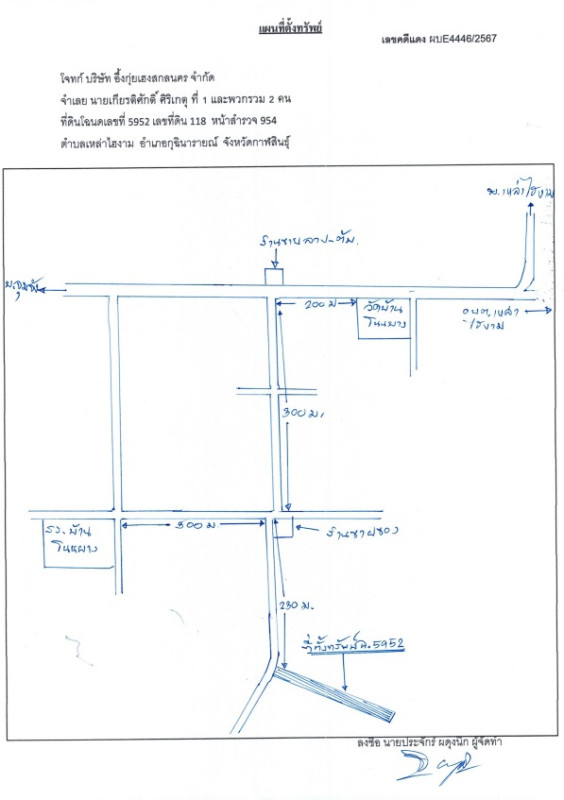 แผนที่ตั้งทรัพย์
เลขคดีแดง ผบE4446/2567
โจทก์ บริษัท อึ้งกุ่ยเฮงสกลนคร จำกัด
จำเลย นายเกียรติศักดิ์ ศิริเกตุ ที่ 1 และพวกรวม 2 คน
ที่ดินโฉนดเลขที่ 5952 เลขที่ดิน 118 หน้าสำรวจ 954
ตำบลเหล่าไฮงาม อำเภอกุฉินารายณ์ จังหวัดกาฬสินธุ์
บ.เหล่าไฮงาม
ร้านขายลาบ-ต้ม
200 ม
วัดบ้าน
โนนยาง
อบต.เหล่า
ไฮงาม
300 ม.
รร.บ้าน
โนนยาง
300 ม.
ร้านขายของ
230 ม.
ที่ตั้งทรัพย์ ฉ.5952
ลงชื่อ นายประจักร์ ผดุงนึก ผู้จัดทำ